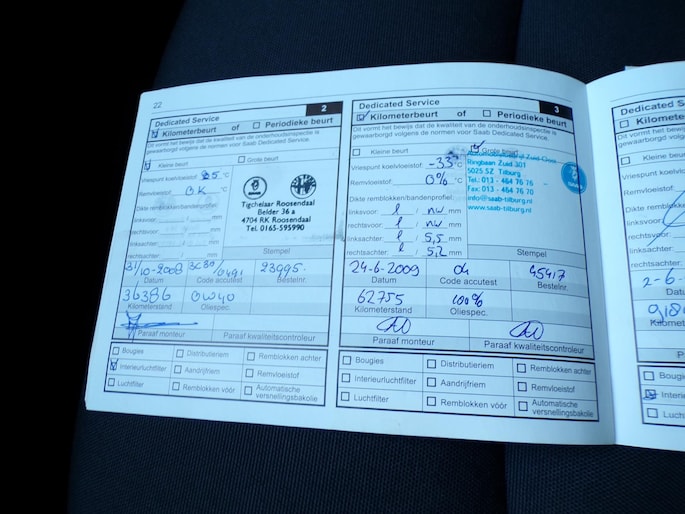 22
Dedicated Service 2
Kilometerbeurt of Periodieke beurt
Dit vormt het bewijs dat de kwaliteit van de onderhoudsinspectie is
gewaarborgd volgens de normen voor Saab Dedicated Service.
Kleine beurt Grote beurt
Vriespunt koelvloeistof: °C
Remvloeistof: OK °C
Dikte remblokken/bandenprofiel:
linksvoor: mm
rechtsvoor: mm
linksachter: mm
rechtsachter: mm
Tigchelaar Roosendaal
Belder 36 a
4704 RK Roosendaal
Tel. 0165-595990
Stempel
31/10-2008 23995
Datum Code accutest Bestelnr.
36386 0W40
Kilometerstand Oliespec.
Paraaf monteur Paraaf kwaliteitscontroleur
Bougies Distributieriem Remblokken achter
Interieurluchtfilter Aandrijfriem Remvloeistof
Luchtfilter Remblokken vóór Automatische
versnellingsbakolie
Dedicated Service 3
Kilometerbeurt of Periodieke beurt
Dit vormt het bewijs dat de kwaliteit van de onderhoudsinspectie is
gewaarborgd volgens de normen voor Saab Dedicated Service.
Kleine beurt Grote beurt
Vriespunt koelvloeistof: -33 °C
Remvloeistof: 0%
Dikte remblokken/bandenprofiel:
linksvoor: / nw mm
rechtsvoor: / nw mm
linksachter: / 5,5 mm
rechtsachter: / 5,2 mm
Ringbaan Zuid 301
5025 SZ Tilburg
Tel.: 013 - 464 76 76
Fax: 013 - 464 76 70
info@saab-tilburg.nl
www.saab-tilburg.nl
Stempel
24-6-2009 04 45417
Datum Code accutest Bestelnr.
62755 100%
Kilometerstand Oliespec.
Paraaf monteur Paraaf kwaliteitscontroleur
Bougies Distributieriem Remblokken achter
Interieurluchtfilter Aandrijfriem Remvloeistof
Luchtfilter Remblokken vóór Automatische
versnellingsbakolie
Dedicated
Kilomete
Dit vormt het be
gewaarborgd vo
Kleine beurt
Vriespunt koelv
Remvloeistof:
Dikte remblokke
linksvoor:
rechtsvoor:
linksachter:
rechtsachter:
2-6-
Datum
Kilomete
Bougi
Interie
Luch